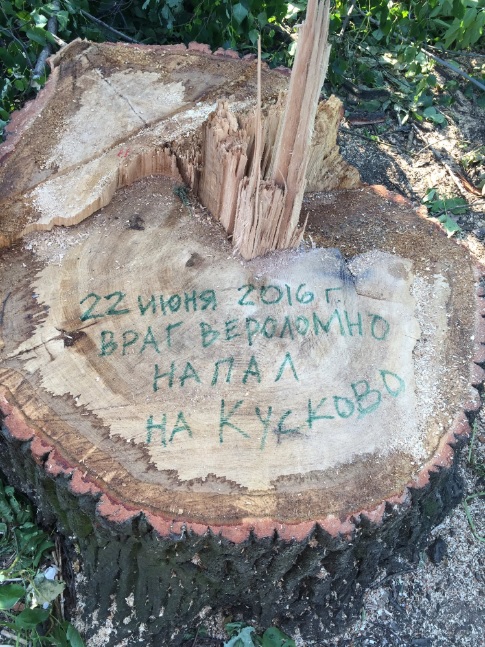 22 июня 2016 г.
ВРАГ ВЕРОЛОМНО
НАПАЛ
НА КУСКОВО